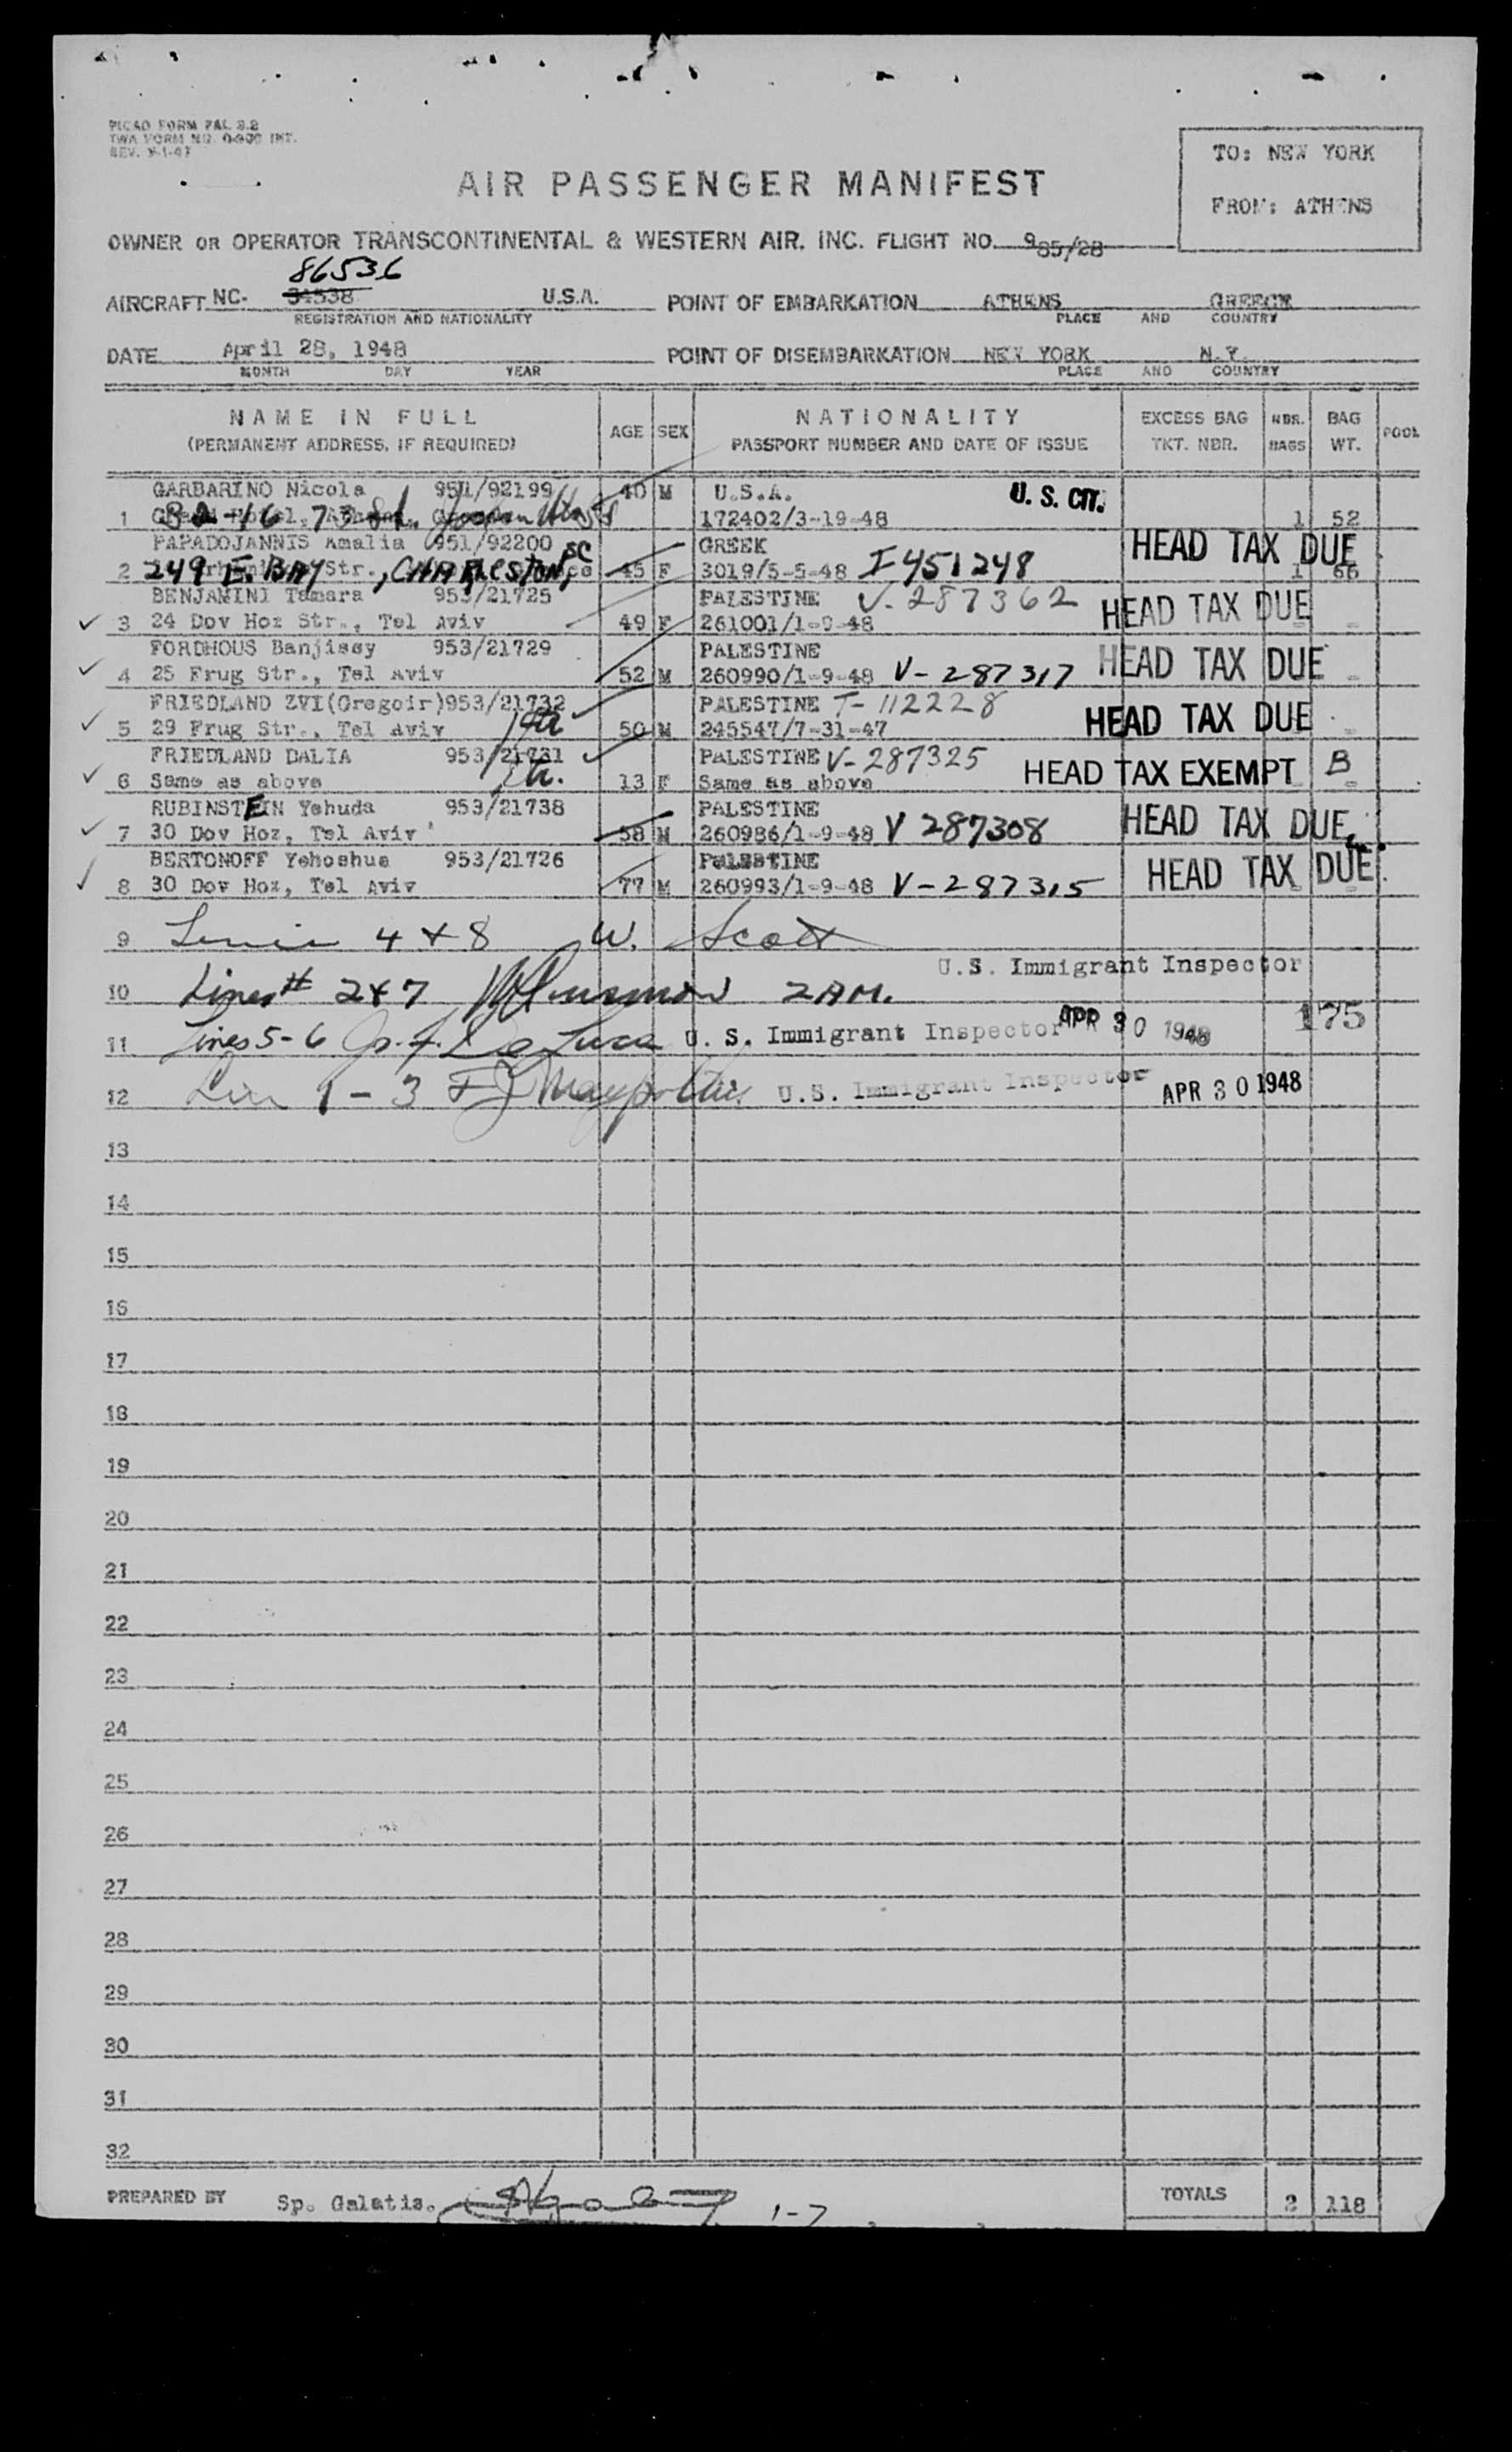 PICAO FORM PAL 2.2
TWA FORM NO. 0-900 INT.
REV. 9-1-47
TO: NEW YORK
FROM: ATHENS
AIR PASSENGER MANIFEST
OWNER OR OPERATOR TRANSCONTINENTAL & WESTERN AIR, INC. FLIGHT NO. 985/28
86536
AIRCRAFT NC- 34538 U.S.A. POINT OF EMBARKATION ATHENS GREECE
REGISTRATION AND NATIONALITY PLACE AND COUNTRY
DATE April 28, 1948 POINT OF DISEMBARKATION NEW YORK N.Y.
MONTH DAY YEAR PLACE AND COUNTRY
NAME IN FULL AGE SEX NATIONALITY EXCESS BAG NBR. BAG POOL
(PERMANENT ADDRESS, IF REQUIRED) PASSPORT NUMBER AND DATE OF ISSUE TKT. NBR. BAGS WT.
GARBARINO Nicola 951/92199 40 M U.S.A. U. S. CIT.
1 32-16 73 St. Jackson Hts 172402/3-19-48 1 52
PAPADOJANNIS Amalia 951/92200 GREEK HEAD TAX DUE
2 249 E. BAY Str., CHARLESTON, SC 45 F 3019/5-5-48 I-451248 1 66
BENJAMINI Tamara 953/21725 PALESTINE V-287362 HEAD TAX DUE
3 24 Dov Hoz Str., Tel Aviv 49 F 261001/1-9-48
FORDHOUS Banjissy 953/21729 PALESTINE
4 25 Frug Str., Tel Aviv 52 M 260990/1-9-48 V-287317 HEAD TAX DUE
FRIEDLAND ZVI(Gregoir)953/21732 PALESTINE T-112228
5 29 Frug Str., Tel Aviv 50 M 245547/7-31-47 HEAD TAX DUE
FRIEDLAND DALIA 953/21731 PALESTINE V-287325 HEAD TAX EXEMPT B
6 Same as above 13 F Same as above
RUBINSTEIN Yehuda 953/21738 PALESTINE
7 30 Dov Hoz, Tel Aviv 58 M 260986/1-9-48 V 287308 HEAD TAX DUE
BERTONOFF Yehoshua 953/21726 PALESTINE
8 30 Dov Hoz, Tel Aviv 77 M 260993/1-9-48 V-287315 HEAD TAX DUE
9 4 + 8 W. Scott
U.S. Immigrant Inspector
10 Lines # 2+7 2 AM.
11 Lines 5-6 De Luca U. S. Immigrant Inspector APR 30 1948 175
12 1 - 3 U.S. Immigrant Inspector APR 30 1948
13
14
15
16
17
18
19
20
21
22
23
24
25
26
27
28
29
30
31
32
PREPARED BY Sp. Galatis. 1-7 TOTALS 2 118